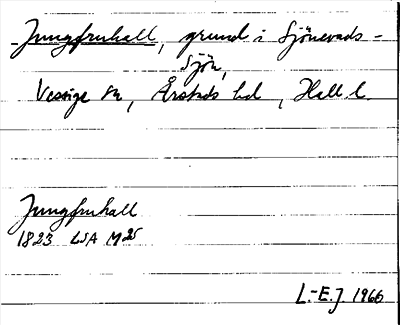 Jungfruhall, grund i Sjönevads-
sjön,
Vessige sn, Årstads hd, Hall. l.
Jungfruhall
1823 LSA M25
L.-E. J. 1966